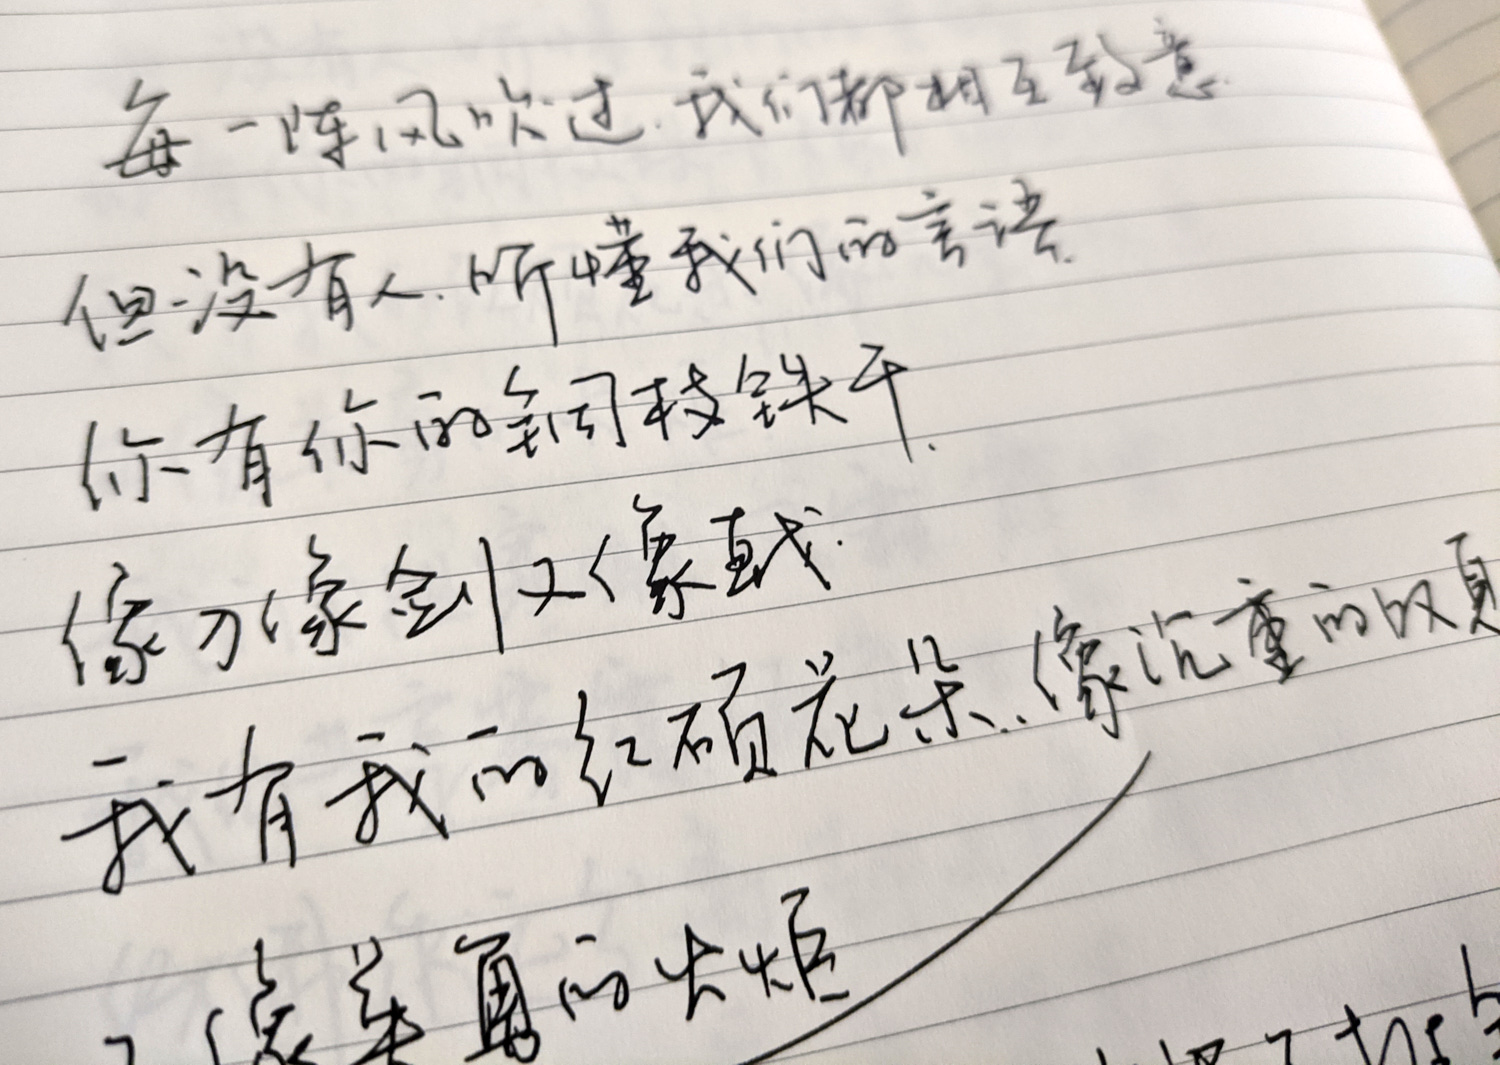 每一阵风吹过.我们都相互致意.
但没有人.听懂我们的言语.
你有你的铜枝铁干.
像刀像剑又像戟.
我有我的红硕花朵.像沉重的叹息
又像英勇的火炬